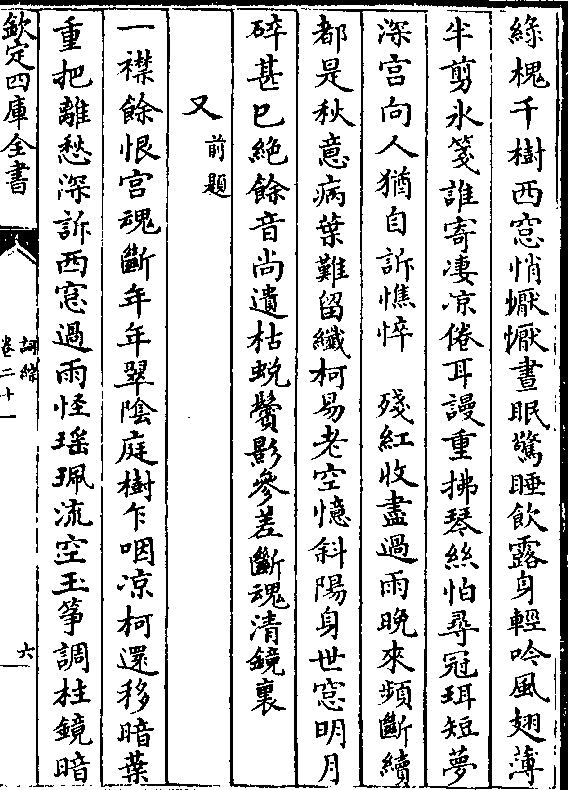 綠槐千樹西窓悄懨懨晝眠驚睡飲露身輕吟風翅薄
半剪氷箋誰寄凄凉倦耳謾重拂琴絲怕尋冠珥短夢
深宫向人猶自訴憔悴　殘紅收盡過雨晚來頻斷續
都是秋意病葉難留纎柯易老空憶斜陽身世窓明月
碎甚已絶餘音尚遺枯蜕鬢影參差斷魂清鏡裏
又前題
一襟餘恨宫魂斷年年翠陰庭樹乍咽凉柯還移暗葉
重把離愁深訴西窓過雨怪瑶珮流空玉筝調柱鏡暗
欽定四庫全書
詞綜
卷二十一
六